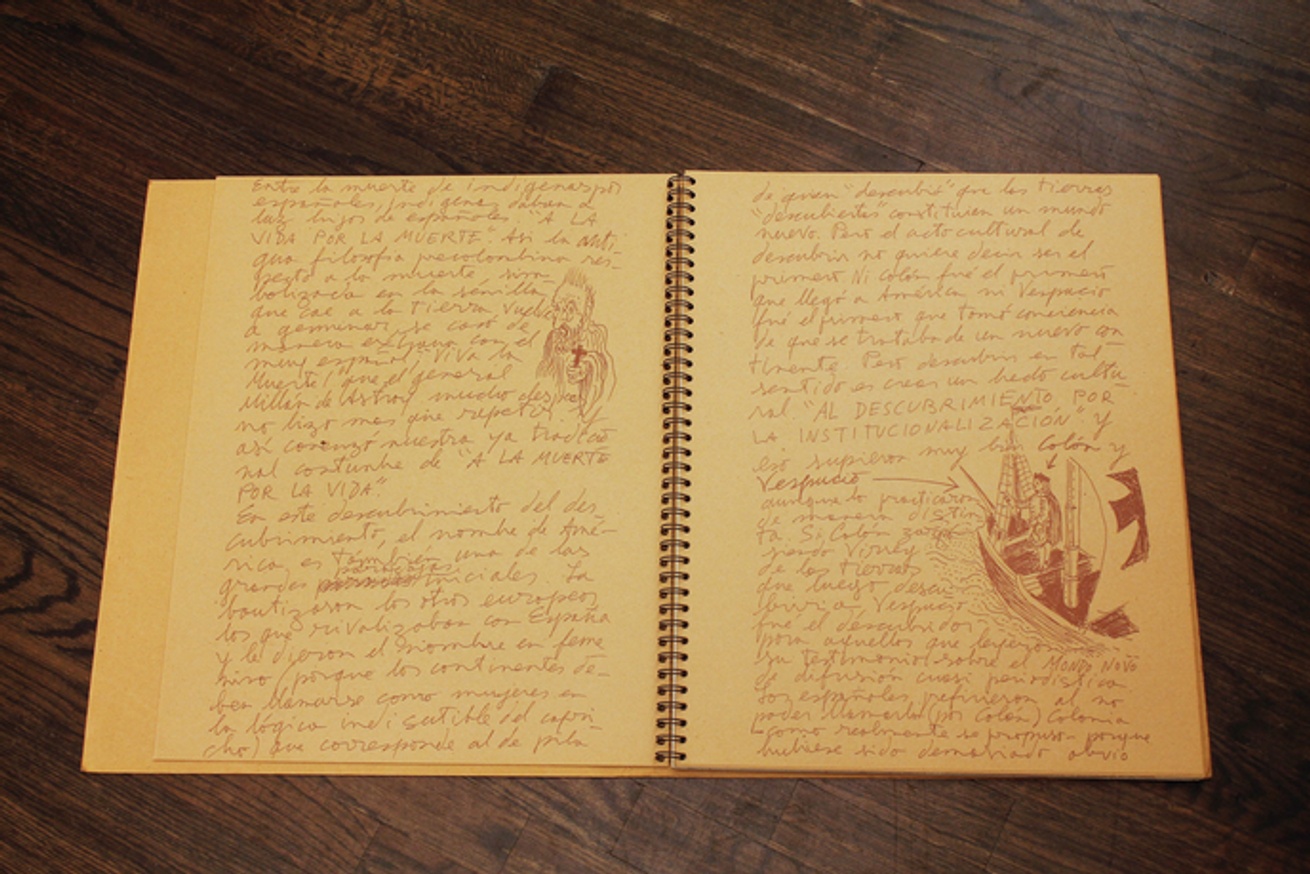 Entre la muerte de indígenas por
españoles, indígenas daban a
luz hijos de españoles. "A LA
VIDA POR LA MUERTE". Así la anti-
gua filosofía precolombina res-
pecto a la muerte sim-
bolizada en la semilla
que cae a la tierra y vuelve
a germinar, se casó de
manera extraña con el
muy español, "Viva la
Muerte!" que el general
Millán de Astray mucho después
no hizo mas que repetir. Y
así comenzó nuestra ya tradicio
nal costumbre de "A LA MUERTE
POR LA VIDA".
En este descubrimiento del des-
cubrimiento, el nombre de Amé-
rica es también una de las
grandes paradojas iniciales. La
bautizaron los otros europeos
los que rivalizaban con España
y le dieron el nombre en feme
nino (porque los continentes de-
ben llamarse como mujeres en
la lógica indiscutible del capri-
cho) que corresponde al de pilo
de quien "descubrió" que las tierras
"descubiertas" constituían un mundo
nuevo. Pero el acto cultural de
descubrir no quiere decir ser el
primero. Ni Colón fué el primero
que llegó a América ni Vespucio
fué el primero que tomó conciencia
de que se trataba de un nuevo con
tinente. Pero descubrir en tal
sentido es crear un hecho cultu-
ral "AL DESCUBRIMIENTO POR
LA INSTITUCIONALIZACIÓN" y
eso supieron muy bien Colón y
Vespucio
aunque lo practicaron
de manera distin
ta. Si Colón
siendo Virrey
de las tierras
que luego descu-
briria, Vespucio
fué el descubridor
para aquellos que leyeron
su testimonio sobre el MONDO NOVO
de difusión cuasi periodística.
Los españoles prefirieron al no
poder llamarla (por Colón) Colonia
-como realmente se propuso- porque
hubiese sido demasiado obvio